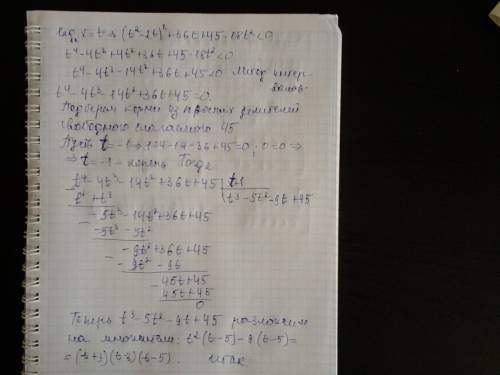 x = t ⇒ (t² - 2t)² + 36t + 45 - 18t² < 0
t⁴ - 4t³ + 4t² + 36t + 45 - 18t² < 0
t⁴ - 4t³ - 14t² + 36t + 45 < 0 Метод интер-
валов.
t⁴ - 4t³ - 14t² + 36t + 45 = 0
Подберем корни из делителей
свободного слагаемого 45
Пусть t = -1 ⇒ 1 + 4 - 14 - 36 + 45 = 0; 0 = 0 ⇒
⇒ t = -1 - корень. Тогда
t⁴ - 4t³ - 14t² + 36t + 45 | t+1
t⁴ + t³ | t³ - 5t² - 9t + 45
- 5t³ - 14t² + 36t + 45
- 5t³ - 5t²
- 9t² + 36t + 45
- 9t² - 9t
45t + 45
45t + 45
0
Теперь t³ - 5t² - 9t + 45 разложим
на множители: t²(t-5) - 9(t-5) =
= (t+3)(t-3)(t-5). Итак